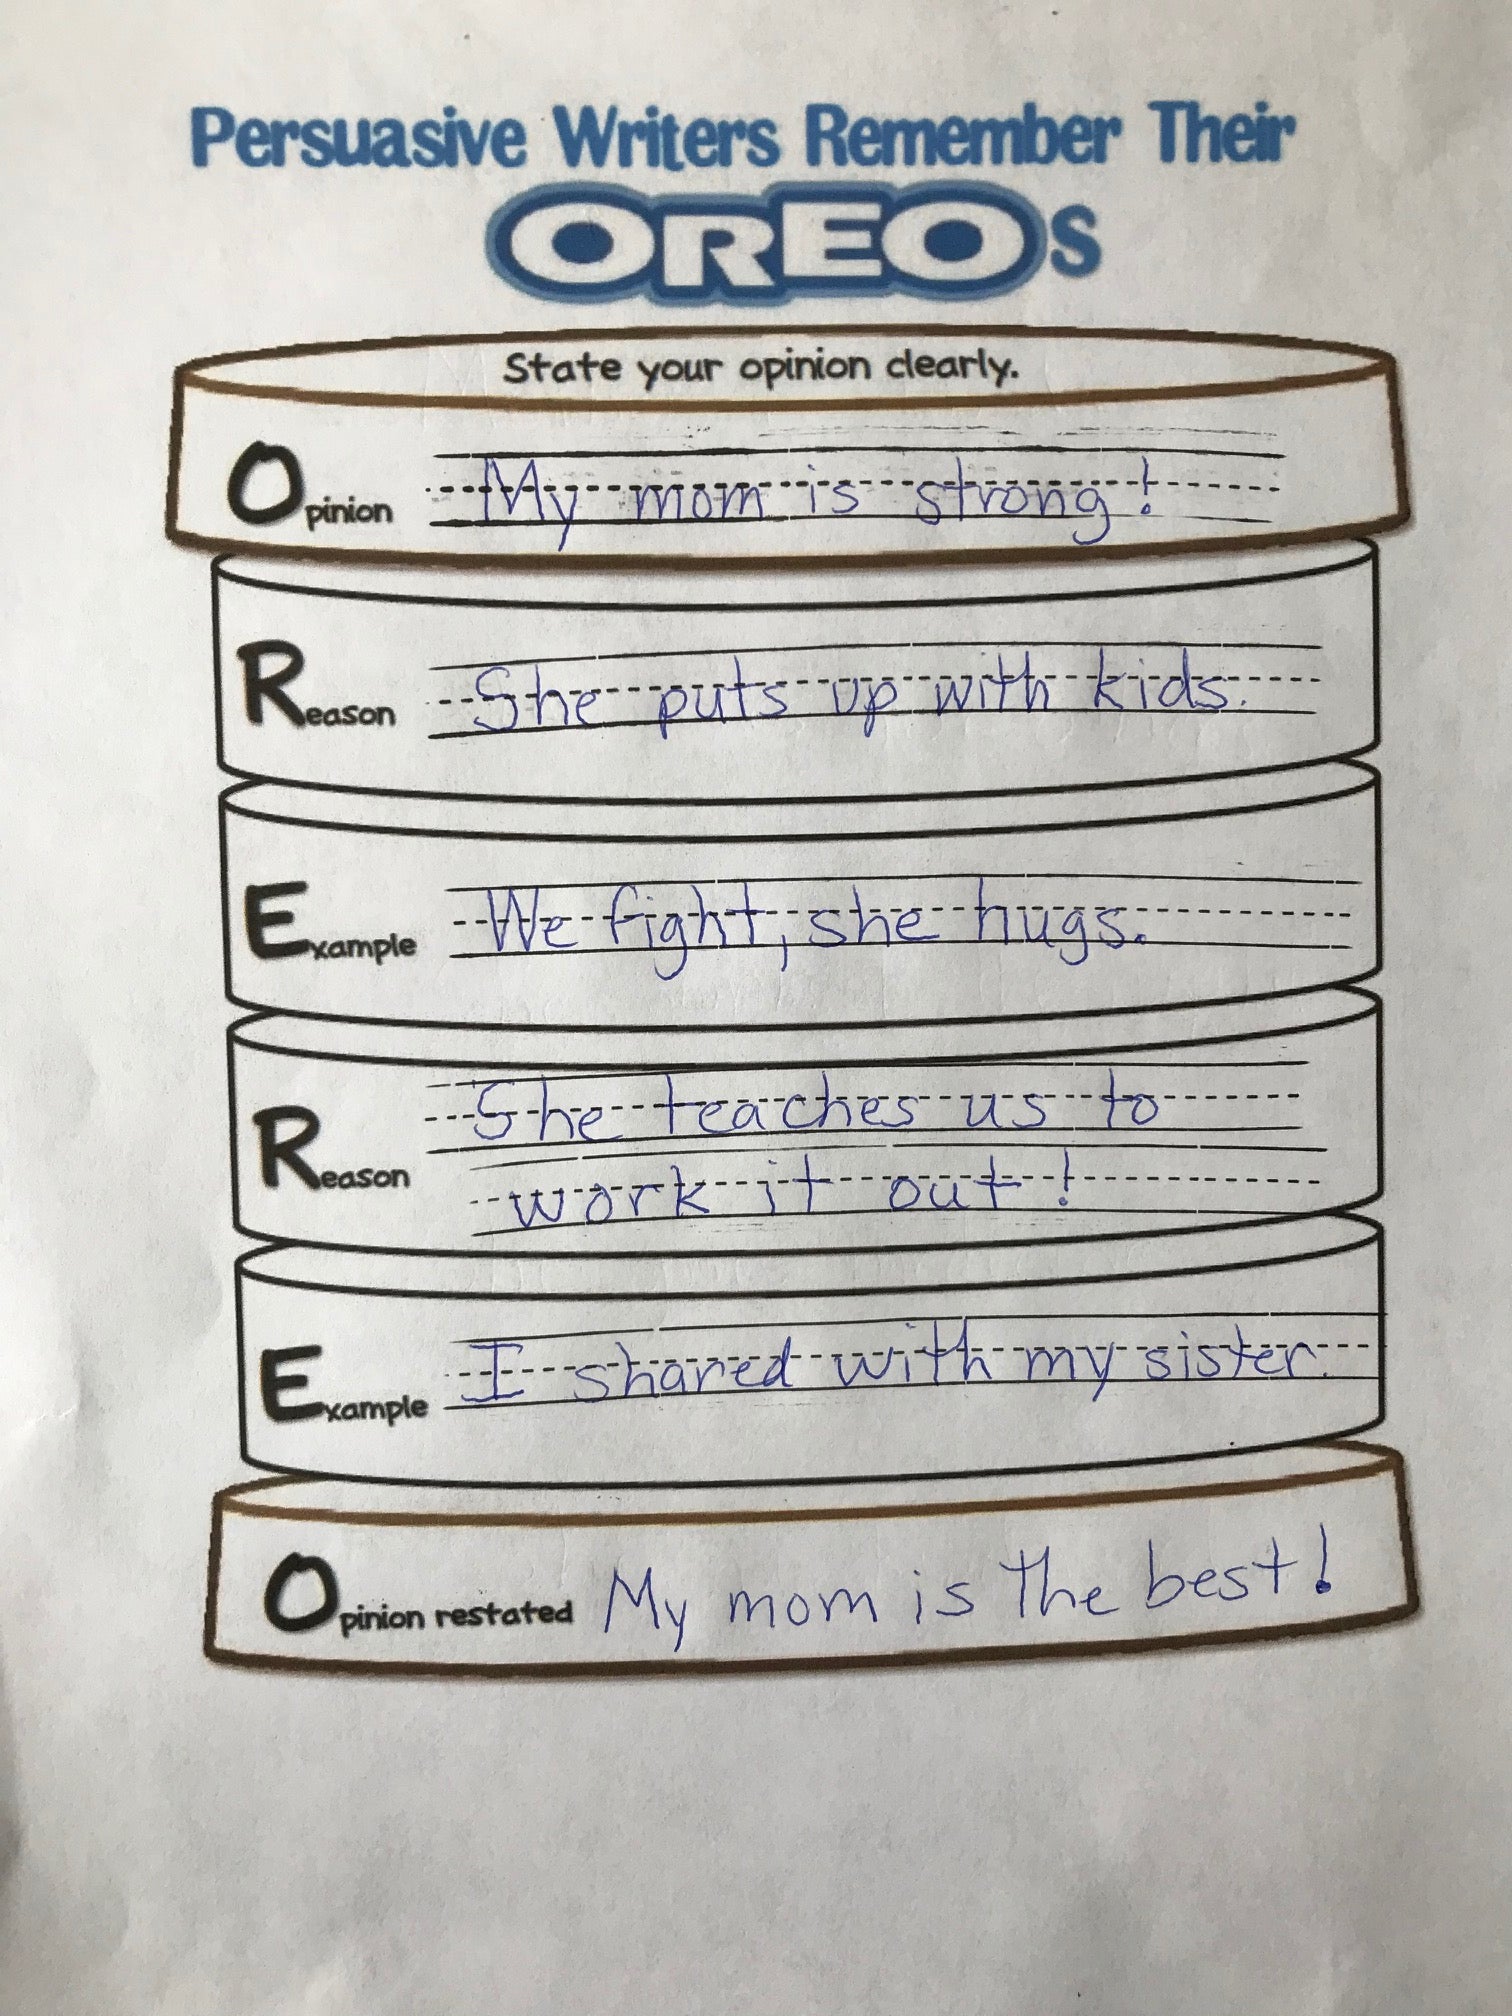 Persuasive Writers Remember Their
OREOs
State your opinion clearly.
Opinion My mom is strong!
Reason She puts up with kids.
Example We fight, she hugs.
She teaches us to
Reason work it out!
Example I shared with my sister.
Opinion restated My mom is the best!